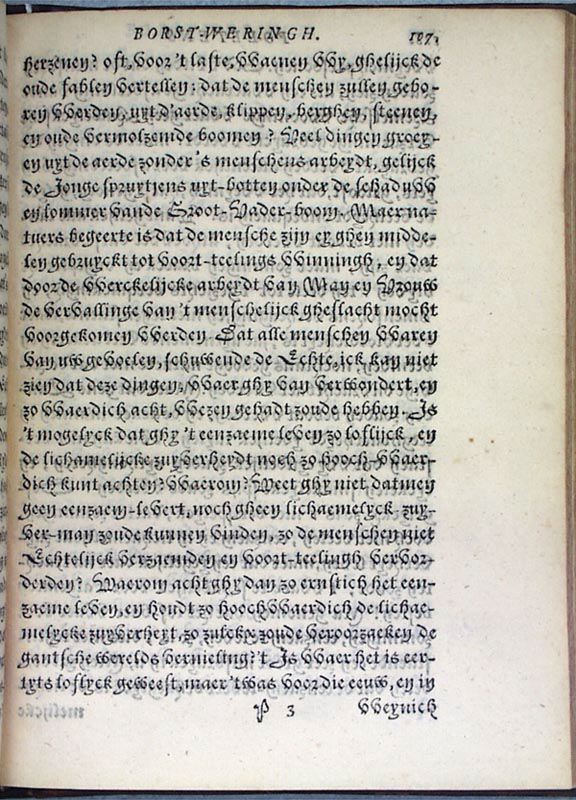 BORST-WERINGH. 187.
herzeney? oft, voor 't laste, VVaeney VVy, ghelijck de
oude fablen vertellen: dat de menschen zullen gebo-
ren VVerden, uyt d'aerde, klippen, berghen, steenen,
en oude vermolzemde boomen? Veel dingen groey-
en uyt de aerde zonder 's menschens arbeydt, gelijck
de Jonge spruytjens uyt-botten onder de schaduVV
en lommer vande Groot-Vader-boom. Maer na-
tuers begeerte is dat de mensche zijn eyghen midde-
len gebruyckt tot voort-teelings VVinningh, en dat
door de VVerckelijcke arbeydt van Man en VrouVV
de vervallinge van 't menschelijck gheslacht mocht
voorgekomen VVerden. Dat alle menschen VVaren
van uw gevoelen, schuwende de Echte, ick kan niet
zien dat deze dingen, VVaer ghy van verwondert, en
zo VVaerdich acht, VVezen gehadt zoude hebben. Is
't mogelyck dat ghy 't eenzaeme leven zo loflijck, en
de lichamelijcke zuyverheydt noch zo hooch VVaer-
dich kunt achten? VVaerom? Weet ghy niet, datmen
geen eenzaem-levert, noch gheen lichaemelyck-zuy-
ver-man zoude kunnen vinden, zo de menschen niet
Echtelijck verzaemden en voort-teelingh vervor-
derden? Waerom acht ghy dan zo ernstich het een-
zaeme leven, en houdt zo hooch VVaerdich de lichae-
melycke zuyverheyt, zo zulckx zoude veroorzaeken de
gantsche werelds vernieling? 't Is VVaer het is eer-
tyts loflyck geweest, maer 't was voor die eeuw, en in
P 3 VVeynich